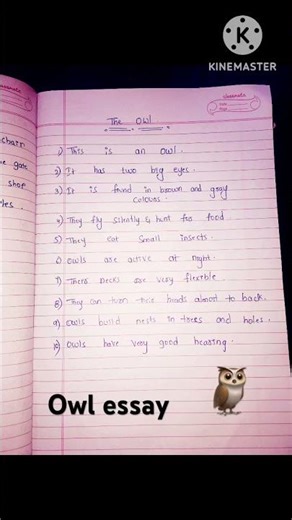 KINEMASTER
classmate
Date
Page
The Owl
chair
gate
shop
1) This is an owl.
2) It has two big eyes.
3) It is found in brown and gray
colours.
4) They fly silently & hunt for food.
5) They eat small insects.
6) Owls are active at night.
7) There necks are very flexible
8) They can turn their heads almost to back.
9) Owls build nests in trees and holes.
10) Owls have very good hearing.
Owl essay